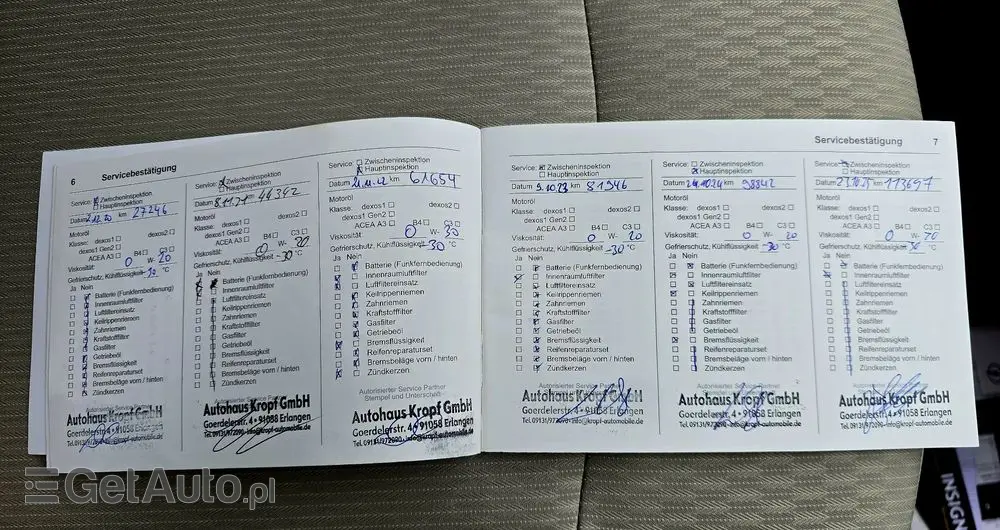 6 Servicebestätigung
Service: Zwischeninspektion
Hauptinspektion
Datum 2.12.20 km 27246
Motoröl
Klasse: dexos1 dexos2
dexos1 Gen2
ACEA A3 B4 C3
Viskosität: 0 W- 20
Gefrierschutz, Kühlflüssigkeit -30 °C
Ja Nein
Batterie (Funkfernbedienung)
Innenraumluftfilter
Luftfiltereinsatz
Keilrippenriemen
Zahnriemen
Kraftstofffilter
Gasfilter
Getriebeöl
Bremsflüssigkeit
Reifenreparaturset
Bremsbeläge vorn / hinten
Zündkerzen
Autorisierter Service
Autohaus Kropf GmbH
Goerdelerstr. 4 • 91058 Erlangen
Tel. 09131/972090 • info@kropf-automobile.de
Service: Zwischeninspektion
Hauptinspektion
Datum 8.11.21 km 44342
Motoröl
Klasse: dexos1 dexos2
dexos1 Gen2
ACEA A3 B4 C3
Viskosität: 0 W- 20
Gefrierschutz, Kühlflüssigkeit -30 °C
Ja Nein
Batterie (Funkfernbedienung)
Innenraumluftfilter
Luftfiltereinsatz
Keilrippenriemen
Zahnriemen
Kraftstofffilter
Gasfilter
Getriebeöl
Bremsflüssigkeit
Reifenreparaturset
Bremsbeläge vorn / hinten
Zündkerzen
Autorisierter Service
Autohaus Kropf GmbH
Goerdelerstr. 4 • 91058 Erlangen
Tel. 09131/972090 • info@kropf-automobile.de
Service: Zwischeninspektion
Hauptinspektion
Datum km 61654
Motoröl
Klasse: dexos1 dexos2
dexos1 Gen2
ACEA A3 B4 C3
Viskosität: 0 W- 30
Gefrierschutz, Kühlflüssigkeit -30 °C
Ja Nein
Batterie (Funkfernbedienung)
Innenraumluftfilter
Luftfiltereinsatz
Keilrippenriemen
Zahnriemen
Kraftstofffilter
Gasfilter
Getriebeöl
Bremsflüssigkeit
Reifenreparaturset
Bremsbeläge vorn / hinten
Zündkerzen
Autorisierter Service Partner
Stempel und Unterschrift
Autohaus Kropf GmbH
Goerdelerstr. 4 • 91058 Erlangen
Tel. 09131/972090 • info@kropf-automobile.de
Servicebestätigung 7
Service: Zwischeninspektion
Hauptinspektion
Datum 9.10.23 km 81946
Motoröl
Klasse: dexos1 dexos2
dexos1 Gen2
ACEA A3 B4 C3
Viskosität: 0 W- 20
Gefrierschutz, Kühlflüssigkeit -30 °C
Ja Nein
Batterie (Funkfernbedienung)
Innenraumluftfilter
Luftfiltereinsatz
Keilrippenriemen
Zahnriemen
Kraftstofffilter
Gasfilter
Getriebeöl
Bremsflüssigkeit
Reifenreparaturset
Bremsbeläge vorn / hinten
Zündkerzen
Autorisierter Service
Autohaus Kropf GmbH
Goerdelerstr. 4 • 91058 Erlangen
Tel. 09131/972090 • info@kropf-automobile.de
Service: Zwischeninspektion
Hauptinspektion
Datum 24.10.24 km 98842
Motoröl
Klasse: dexos1 dexos2
dexos1 Gen2
ACEA A3 B4 C3
Viskosität: 0 W- 20
Gefrierschutz, Kühlflüssigkeit -30 °C
Ja Nein
Batterie (Funkfernbedienung)
Innenraumluftfilter
Luftfiltereinsatz
Keilrippenriemen
Zahnriemen
Kraftstofffilter
Gasfilter
Getriebeöl
Bremsflüssigkeit
Reifenreparaturset
Bremsbeläge vorn / hinten
Zündkerzen
Autorisierter Service Partner
Autohaus Kropf GmbH
Goerdelerstr. 4 • 91058 Erlangen
Tel. 09131/972090 • info@kropf-automobile.de
Service: Zwischeninspektion
Hauptinspektion
Datum 23.10.25 km 113697
Motoröl
Klasse: dexos1 dexos2
dexos1 Gen2
ACEA A3 B4 C3
Viskosität: 0 W- 20
Gefrierschutz, Kühlflüssigkeit -30 °C
Ja Nein
Batterie (Funkfernbedienung)
Innenraumluftfilter
Luftfiltereinsatz
Keilrippenriemen
Zahnriemen
Kraftstofffilter
Gasfilter
Getriebeöl
Bremsflüssigkeit
Reifenreparaturset
Bremsbeläge vorn / hinten
Zündkerzen
Autorisierter Service Partner
Autohaus Kropf GmbH
Goerdelerstr. 4 • 91058 Erlangen
Tel. 09131/972090 • info@kropf-automobile.de
INSIGN
GetAuto.pl